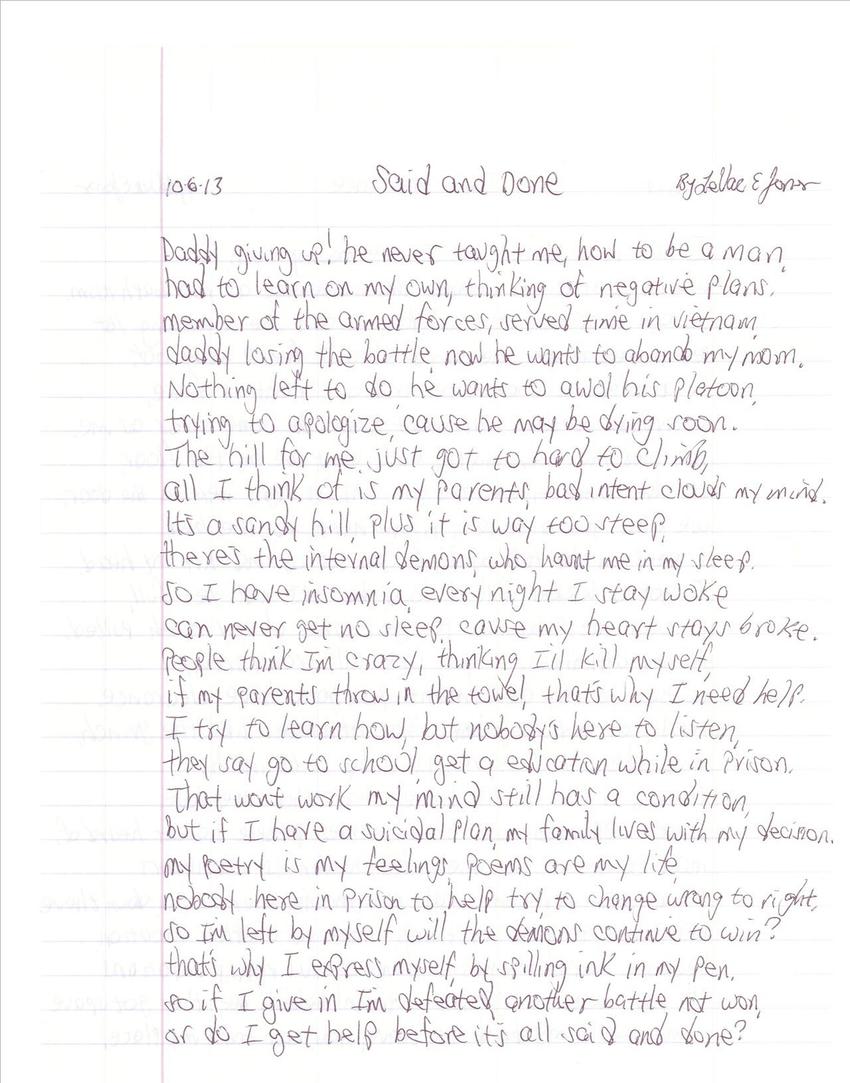 10-6-13 Said and Done By LeVae E Jones
Daddy giving up! he never taught me, how to be a man,
had to learn on my own, thinking of negative plans.
member of the armed forces, served time in vietnam,
daddy losing the battle, now he wants to abando my mom.
Nothing left to do he wants to awol his platoon,
trying to apologize, 'cause he may be dying soon.
The hill for me, just got to hard to climb,
all I think of is my parents, bad intent clouds my mind.
Its a sandy hill, plus it is way too steep,
there's the internal demons, who haunt me in my sleep.
So I have insomnia, every night I stay woke
can never get no sleep, cause my heart stays broke.
People think Im crazy, thinking I'll kill myself,
if my parents throw in the towel, that's why I need help.
I try to learn how, but nobody's here to listen,
they say go to school, get a education while in Prison.
That wont work my mind still has a condition,
but if I have a suicidal plan, my family lives with my decision.
my poetry is my feelings, poems are my life,
nobody here in Prison to help try, to change wrong to right,
so Im left by myself will the demons continue to win?
that's why I express myself, by spilling ink in my pen,
so if I give in Im defeated, another battle not won,
or do I get help before it's all said and done?